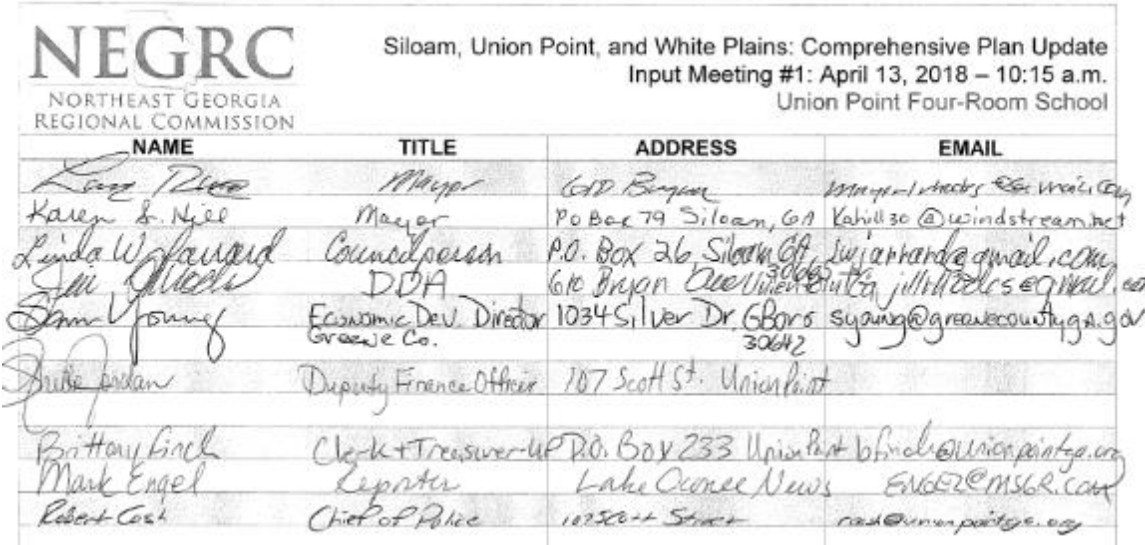 NEGRC
NORTHEAST GEORGIA
REGIONAL COMMISSION
Siloam, Union Point, and White Plains: Comprehensive Plan Update
Input Meeting #1: April 13, 2018 – 10:15 a.m.
Union Point Four-Room School
NAME TITLE ADDRESS EMAIL
Mayor 610 Bryan
Karen S. Hill Mayor PO Box 79 Siloam, GA Kahill30@windstream.net
Linda W Jarrard Councilperson P.O. Box 26 Siloam GA, lwjarrard@gmail.com
DDA 610 Bryan Ave
Young Economic Dev. Director 1034 Silver Dr. GBoro syoung@greenecountyga.gov
Greene Co. 30642
Jordan Deputy Finance Officer 107 Scott St. Union Point
Brittany Finch Clerk + Treasurer-UP P.O. Box 233 Union Point bfinch@unionpointga.org
Mark Engel Reporter Lake Oconee News
Robert Cosh Chief of Police 107 Scott Street